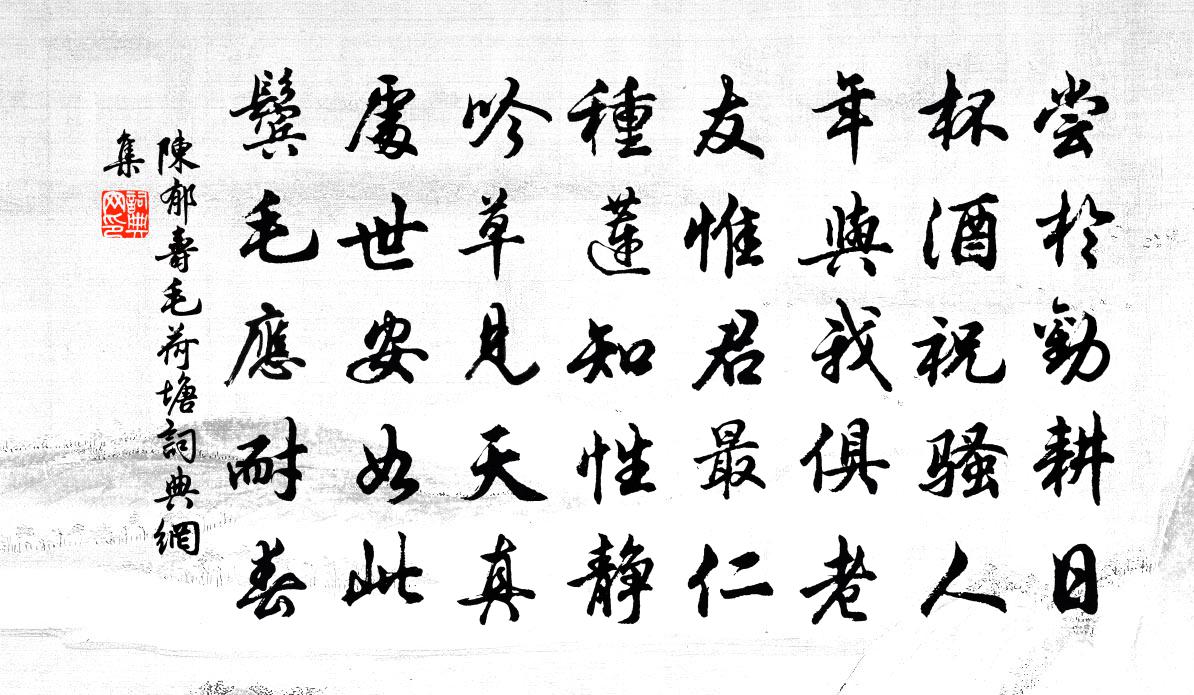 嘗於勸耕日
杯酒祝騷人
年與我俱老
友惟君最仁
種蓮知性静
吟草見天真
處世安如此
鬢毛應耐春
陳郁壽毛荷塘詞典網
集
詞典
网印